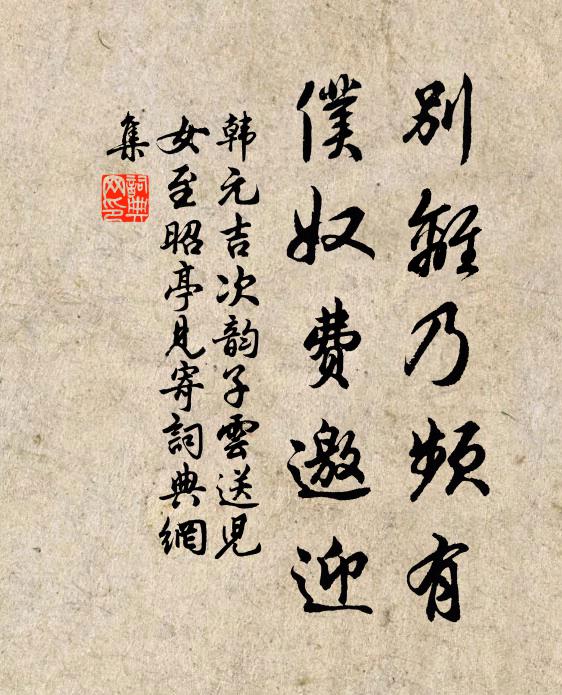 別離乃頻有
僕奴費邀迎
韩元吉次韵子雲送児
女至昭亭見寄詞典網
集
詞典
网印